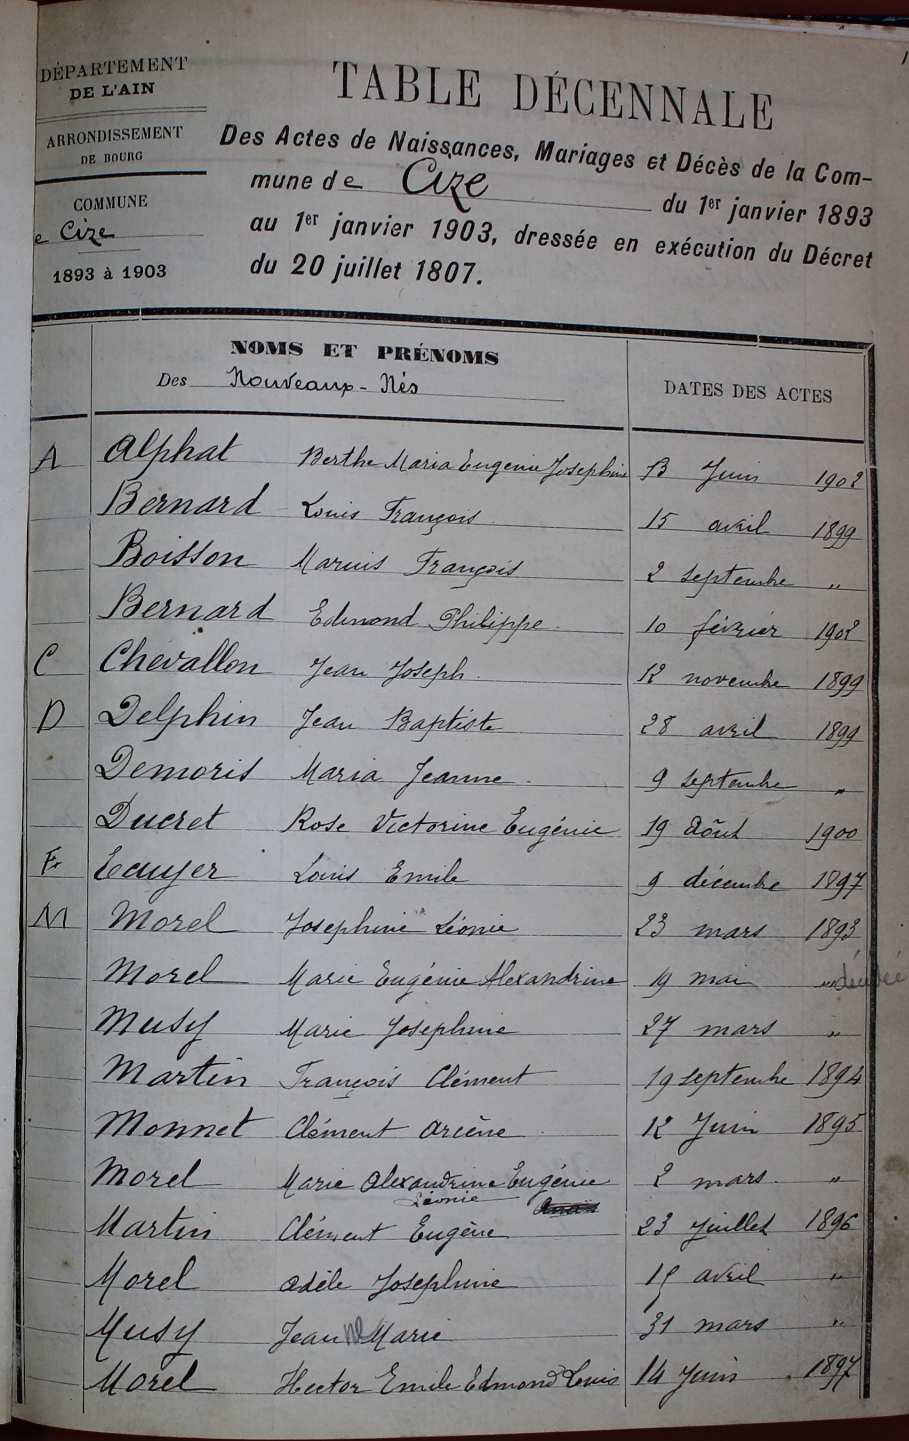 1
DÉPARTEMENT
DE L'AIN
ARRONDISSEMENT
DE BOURG
COMMUNE
e Cize
1893 à 1903
TABLE DÉCENNALE
Des Actes de Naissances, Mariages et Décès de la Com-
mune de Cize du 1er janvier 1893
au 1er janvier 1903, dressée en exécution du Décret
du 20 juillet 1807.
NOMS ET PRÉNOMS
Des Nouveaux-Nés
DATES DES ACTES
A Alphat Berthe Maria Eugenie Josephine 13 Juin 1902
Bernard Louis François 15 avril 1899
Boisson Marius François 2 septembre "
Bernard Edmond Philippe 10 février 1902
C Chevallon Jean Joseph 12 novembre 1899
D Delphin Jean Baptiste 28 avril 1899
Demoris Maria Jeanne 9 septembre "
Ducret Rose Victorine Eugénie 19 Août 1900
E Ecuyer Louis Emile 9 décembre 1897
M Morel Josephine Léonie 23 mars 1893
Morel Marie Eugénie Alexandrine 19 mai "
Musy Marie Josephine 27 mars "
Martin François Clément 19 septembre 1894
Monnet Clément Arsène 12 Juin 1895
Morel Marie Alexandrine Eugénie 2 mars "
Léonie Anaïs
Martin Clément Eugène 23 Juillet 1896
Morel Adèle Josephine 15 avril "
Musy Jeanne Marie 31 mars "
Morel Hector Emile Edmond Louis 14 Juin 1897